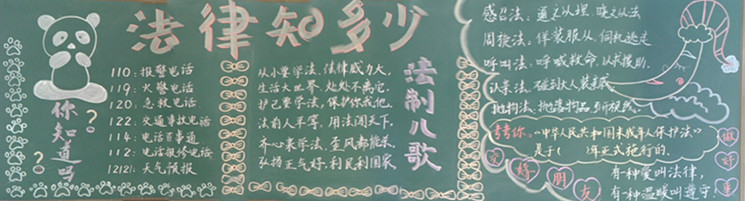 法律知多少
你知道吗
?
?
110:报警电话
119:火警电话
120:急救电话
122:交通事故电话
114:电话百事通
112:电话报修电话
12121:天气预报
法制儿歌
从小要学法,法律威力大,
生活大世界,处处不离它。
护己要学法,保护你我他,
法前人平等,用法闯天下。
齐心来学法,歪风都能杀,
弘扬正气好,利民利国家
呼叫法:呼喊救命,以求援助。
考考你:“中华人民共和国未成年人保护法”
是于( )年正式施行的.
做好
安 好朋友
有一种爱叫法律,
有一种温暖叫遵守!